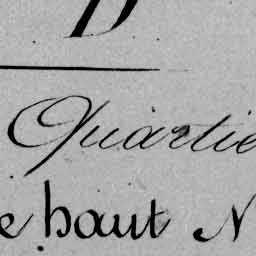 D
Quartie
e haut N